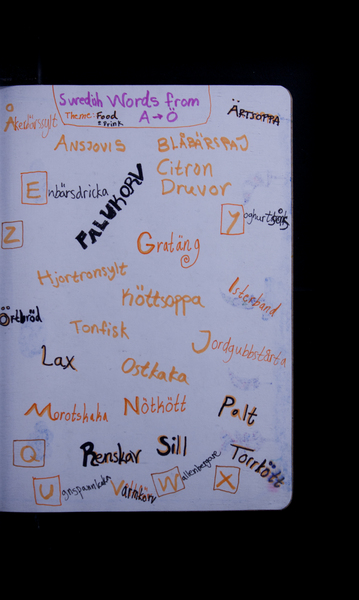 Swedish Words from
Theme: Food
& Drink
A → Ö
Å
Åkerbärssylt
ÄRTSOPPA
ANSJOVIS
BLÅBÄRSPAJ
Citron
Druvor
Enbärsdricka
FALUKORV
Z
Gratäng
Hjortronsylt
Isterband
Köttsoppa
Örtbröd
Tonfisk
Jordgubbstårta
Lax
Ostkaka
Morotskaka
Nötkött
Palt
Q
Renskav
Sill
Torrkött
Ugnspannkaka
Varmkorv
Wallenbergare
X